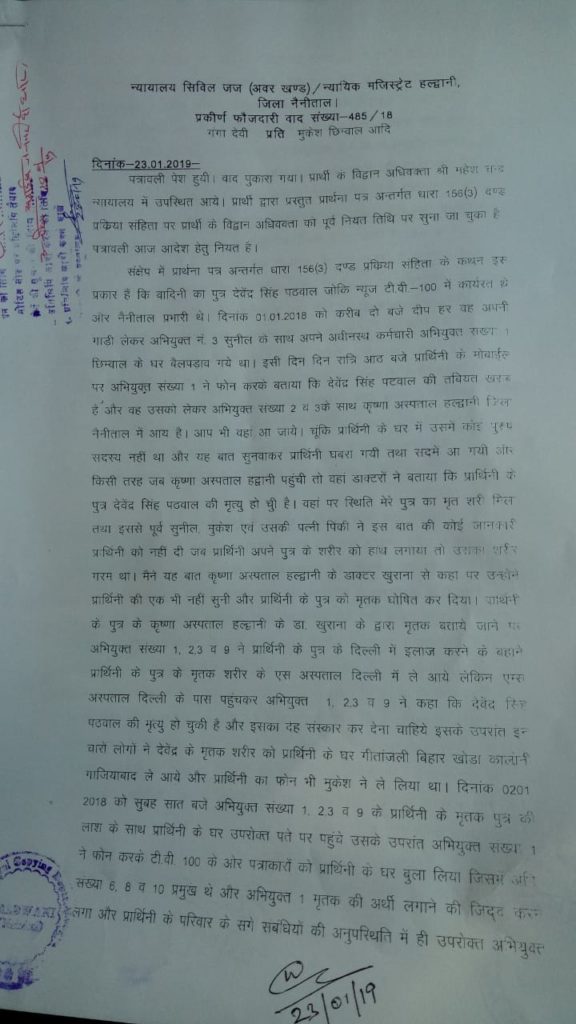 न्यायालय सिविल जज (अवर खण्ड)/न्यायिक मजिस्ट्रेट हल्द्वानी,
जिला नैनीताल।
प्रकीर्ण फौजदारी वाद संख्या-485/18
गंगा देवी प्रति मुकेश छिम्वाल आदि
दिनांक-23.01.2019-
पत्रावली पेश हुयी। वाद पुकारा गया। प्रार्थी के विद्वान अधिवक्ता श्री महेश चन्द्र
न्यायालय में उपस्थित आये। प्रार्थी द्वारा प्रस्तुत प्रार्थना पत्र अन्तर्गत धारा 156(3) दण्ड
प्रक्रिया संहिता पर प्रार्थी के विद्वान अधिवक्ता को पूर्व नियत तिथि पर सुना जा चुका है
पत्रावली आज आदेश हेतु नियत है।
संक्षेप में प्रार्थना पत्र अन्तर्गत धारा 156(3) दण्ड प्रक्रिया संहिता के कथन इस
प्रकार है कि वादिनी का पुत्र देवेंद्र सिंह पठवाल जोकि न्यूज टी.वी-100 में कार्यरत थे
और नैनीताल प्रभारी थे। दिनांक 01.01.2018 को करीब दो बजे दोप हर वह अपनी
गाडी लेकर अभियुक्त नं. 3 सुनील के साथ अपने अधीनस्थ कर्मचारी अभियुक्त संख्या 1
छिम्वाल के घर बैलपडाव गये था। इसी दिन दिन रात्रि आठ बजे प्रार्थिनी के मोबाईल
पर अभियुक्त संख्या 1 ने फोन करके बताया कि देवेंद्र सिंह पटवाल की तबियत खराब
है और वह उसको लेकर अभियुक्त संख्या 2 व 3के साथ कृष्णा अस्पताल हल्द्वानी जिला
नैनीताल में आये है। आप भी वहा आ जाये। चूंकि प्रार्थिनी के घर में उसमें कोई पुरूष
सदस्य नहीं था और यह बात सुनवाकर प्रार्थिनी घबरा गयी तथा सदमें आ गयी और
किसी तरह जब कृष्णा अस्पताल हद्वानी पहुंची तो वहां डाक्टरों ने बताया कि प्रार्थिनी के
पुत्र देवेंद्र सिंह पठवाल की मृत्यु हो चुी है। वहां पर स्थिति मेरे पुत्र का मृत शरी मिला
तथा इससे पूर्व सुनील, मुकेश एवं उसकी पत्नी पिंकी ने इस बात की कोई जानकारी
प्रार्थिनी को नहीं दी जब प्रार्थिनी अपने पुत्र के शरीर को हांथ लगाया तो उसका शरीर
गरम था। मैने यह बात कृष्णा अस्पताल हल्द्वानी के डाक्टर खुराना से कहा पर उन्होने
प्रार्थिनी की एक भी नहीं सुनी और प्रार्थिनी के पुत्र को मृतक घोषित कर दिया। प्रार्थिनी
के पुत्र के कृष्णा अस्पताल हल्द्वानी के डा. खुराना के द्वारा मृतक बताये जाने पर
अभियुक्त संख्या 1, 2,3 व 9 ने प्रार्थिनी के पुत्र के दिल्ली में इलाज करने के बहाने
प्रार्थिनी के पुत्र के मृतक शरीर के एस अस्पताल दिल्ली में ले आये लेकिन एम्स
अस्पताल दिल्ली के पास पहुंचकर अभियुक्त 1, 2,3 व 9 ने कहा कि देवेंद सिंह
पठवाल की मृत्यु हो चुकी है और इसका दह संस्कार कर देना चाहिये इसके उपरांत इन
चारो लोगों ने देवेंद्र के मृतक शरीर को प्रार्थिनी के घर गीतांजली बिहार खोडा कालोनी
गाजियाबाद ले आये और प्रार्थिनी का फोन भी मुकेश ने ले लिया था। दिनांक 0201
2018 को सुबह सात बजे अभियुक्त संख्या 1, 2,3 व 9 के प्रार्थिनी के मृतक पुत्र की
लाश के साथ प्रार्थिनी के घर उपरोक्त पते पर पहुंचे उसके उपरांत अभियुक्त संख्या 1
ने फोन करके टी.वी. 100 के ओर पत्राकारों को प्रार्थिनी के घर बुला लिया जिसमें
संख्या 6, 8 व 10 प्रमुख थे और अभियुक्त 1 मृतक की अर्थी लगाने की जिद्द करने
लगा और प्रार्थिनी के परिवार के सगे सबंधियों की अनुपरिथति में ही उपरोक्त अभियुक्त
23/01/19